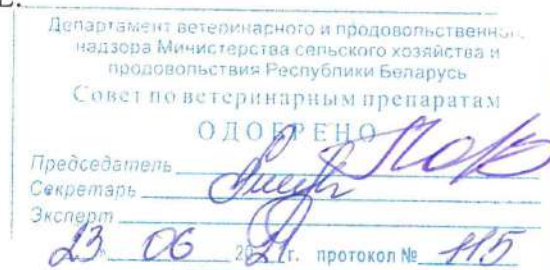 Департамент ветеринарного и продовольственного
надзора Министерства сельского хозяйства и
продовольствия Республики Беларусь
Совет по ветеринарным препаратам
ОДОБРЕНО
Председатель
Секретарь
Эксперт
23 06 2021г. протокол № 115